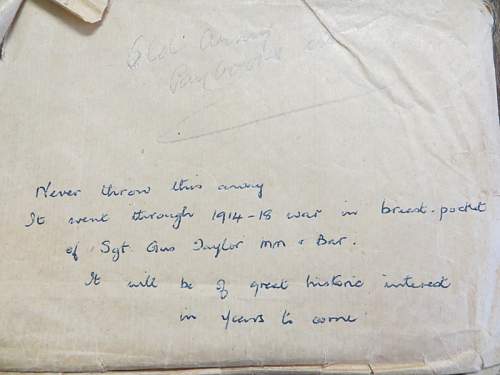 Old Army
Paybooks
Never throw this away
It went through 1914-18 war in breast-pocket
of Sgt. Gus Taylor MM & Bar.
It will be of great historic interest
in years to come